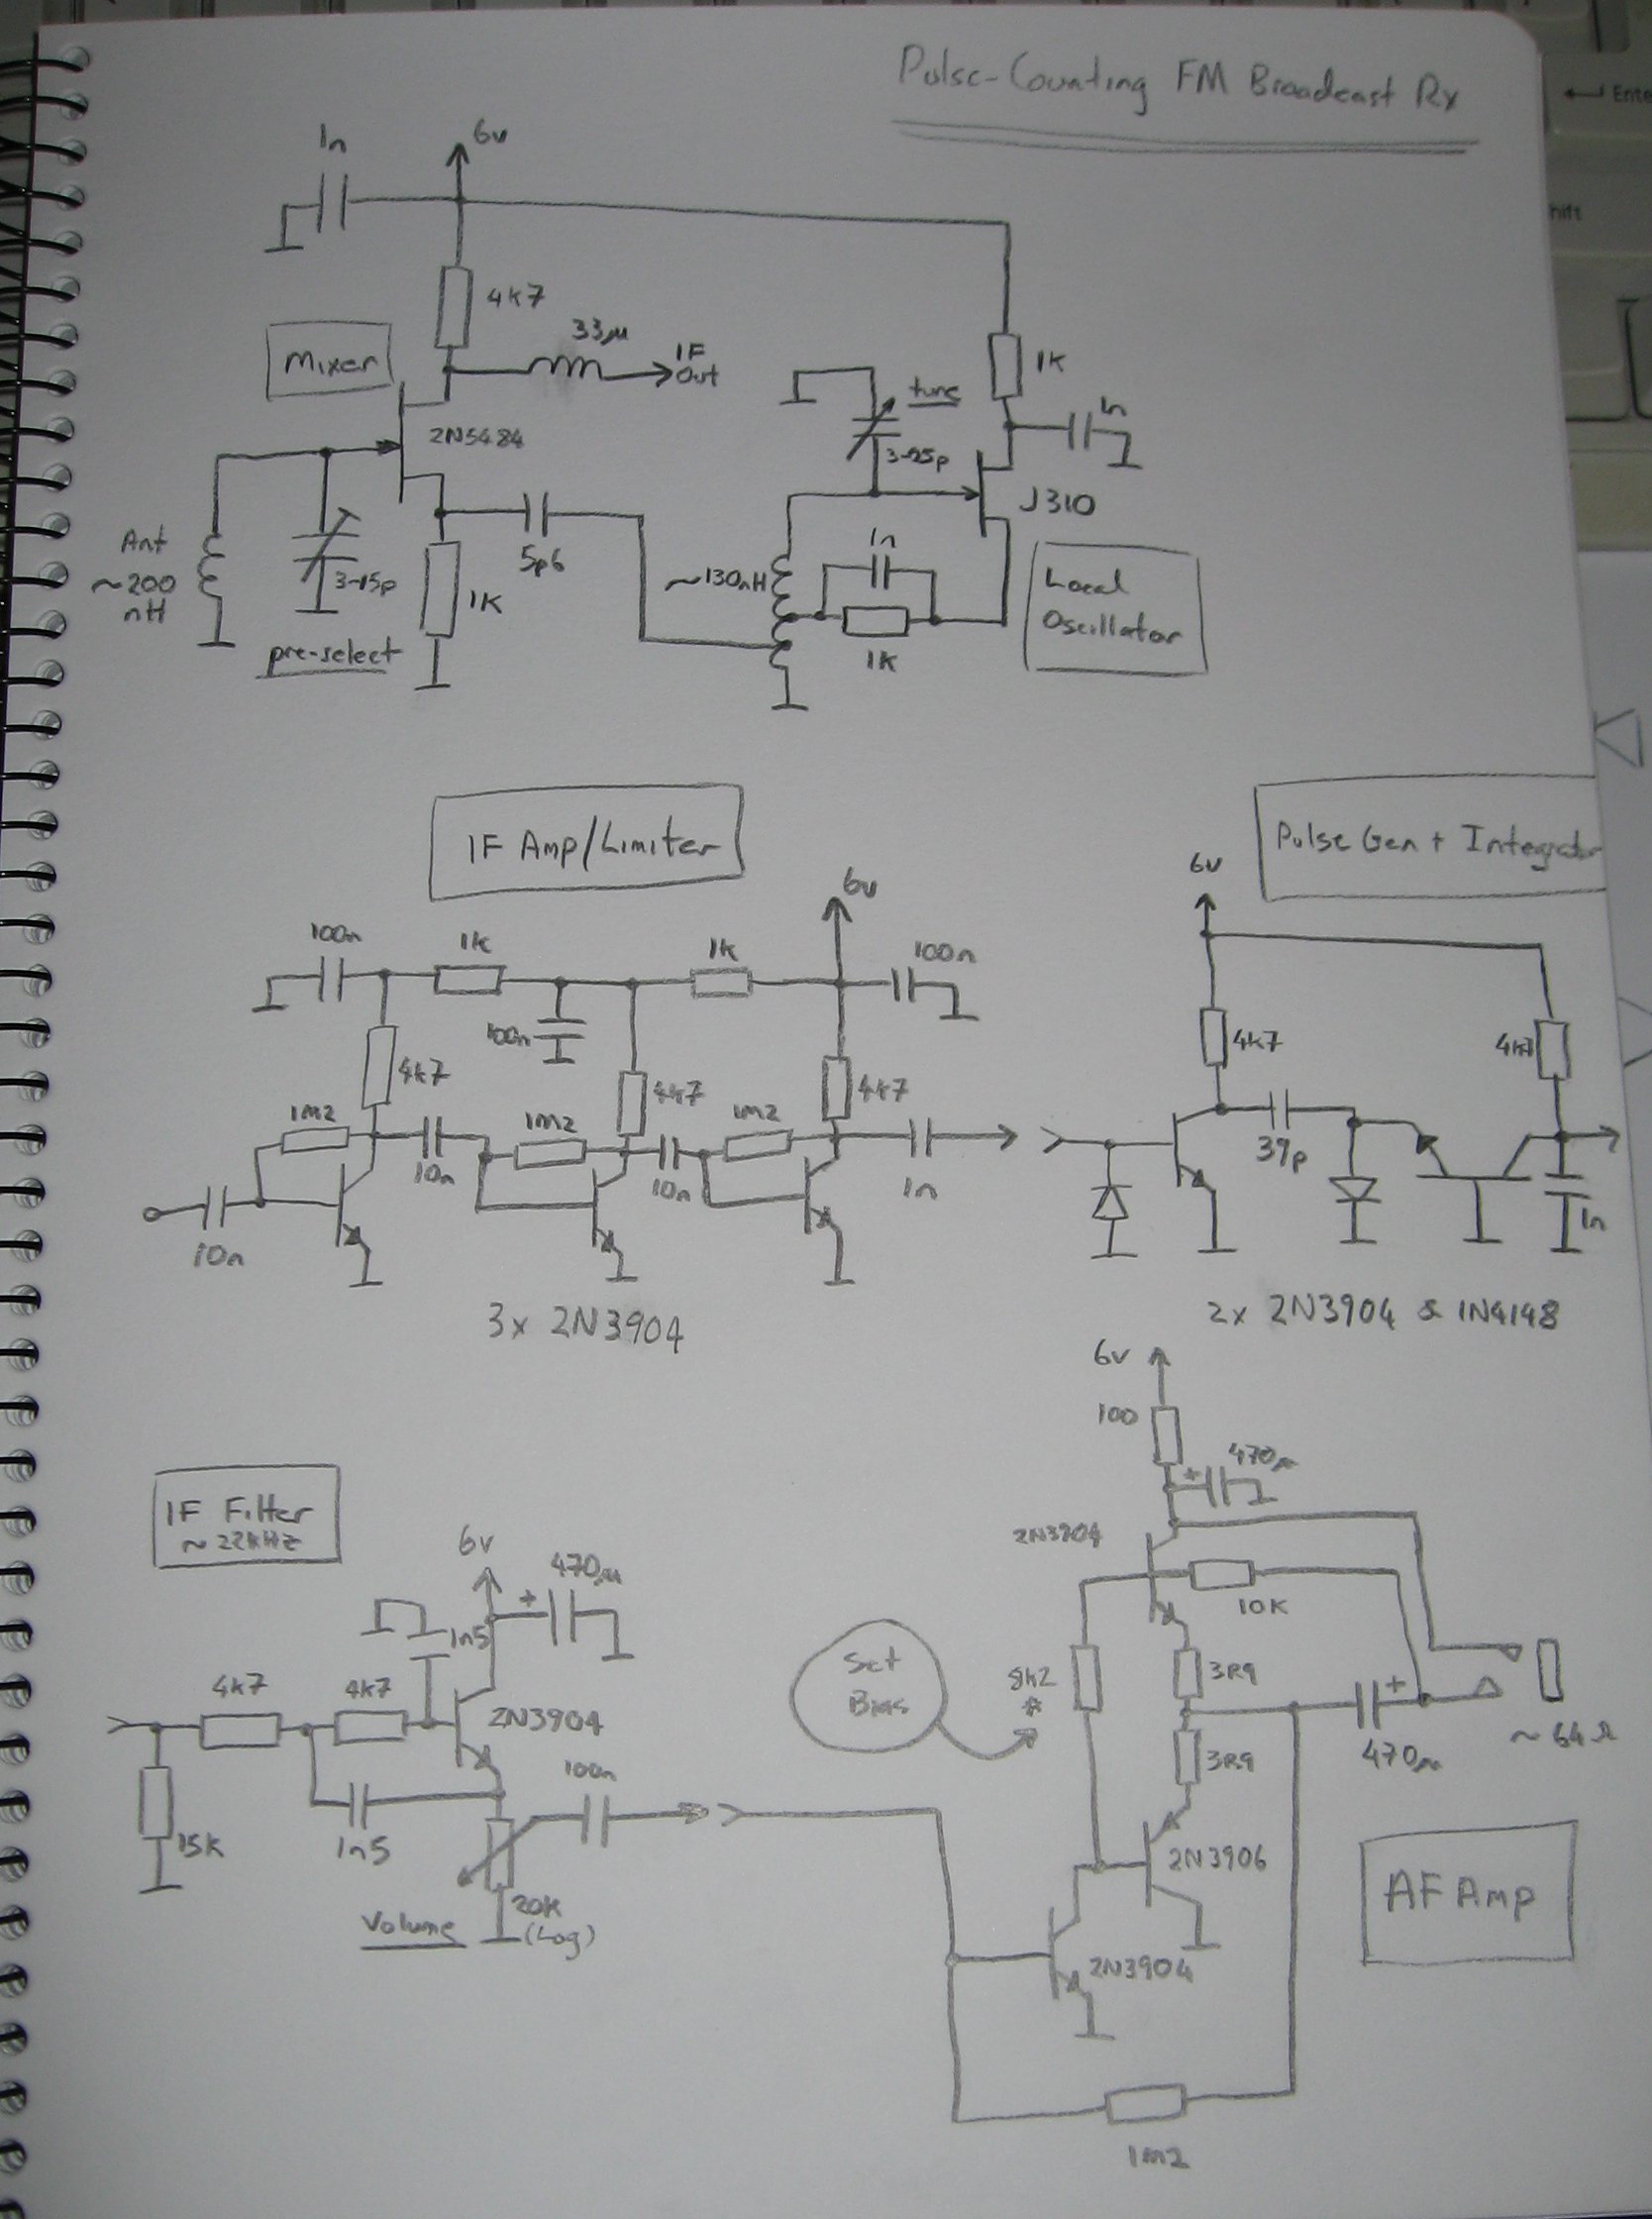 Pulse-Counting FM Broadcast Rx
Enter
hift
1n
6v
4k7
Mixer
33µ
IF
Out
2N5484
tune
3-25p
1K
1n
J310
Ant
~200
nH
3-15p
pre-select
1K
5p6
~130nH
1n
1K
Local
Oscillator
IF Amp/Limiter
6v
100n
1k
1k
100n
100n
4k7
4k7
4k7
1M2
1M2
1M2
10n
10n
10n
1n
3x 2N3904
Pulse Gen + Integrator
6v
4k7
4k7
39p
1n
2x 2N3904 & 1N4148
IF Filter
~22kHz
6v
470µ
+
1n5
4k7
4k7
2N3904
100n
15k
1n5
Volume
20k
(Log)
6v
100
470µ
+
2N3904
10K
Set
Bias
8k2
*
3R9
3R9
+
470µ
~64Ω
2N3906
AF Amp
2N3904
1M2